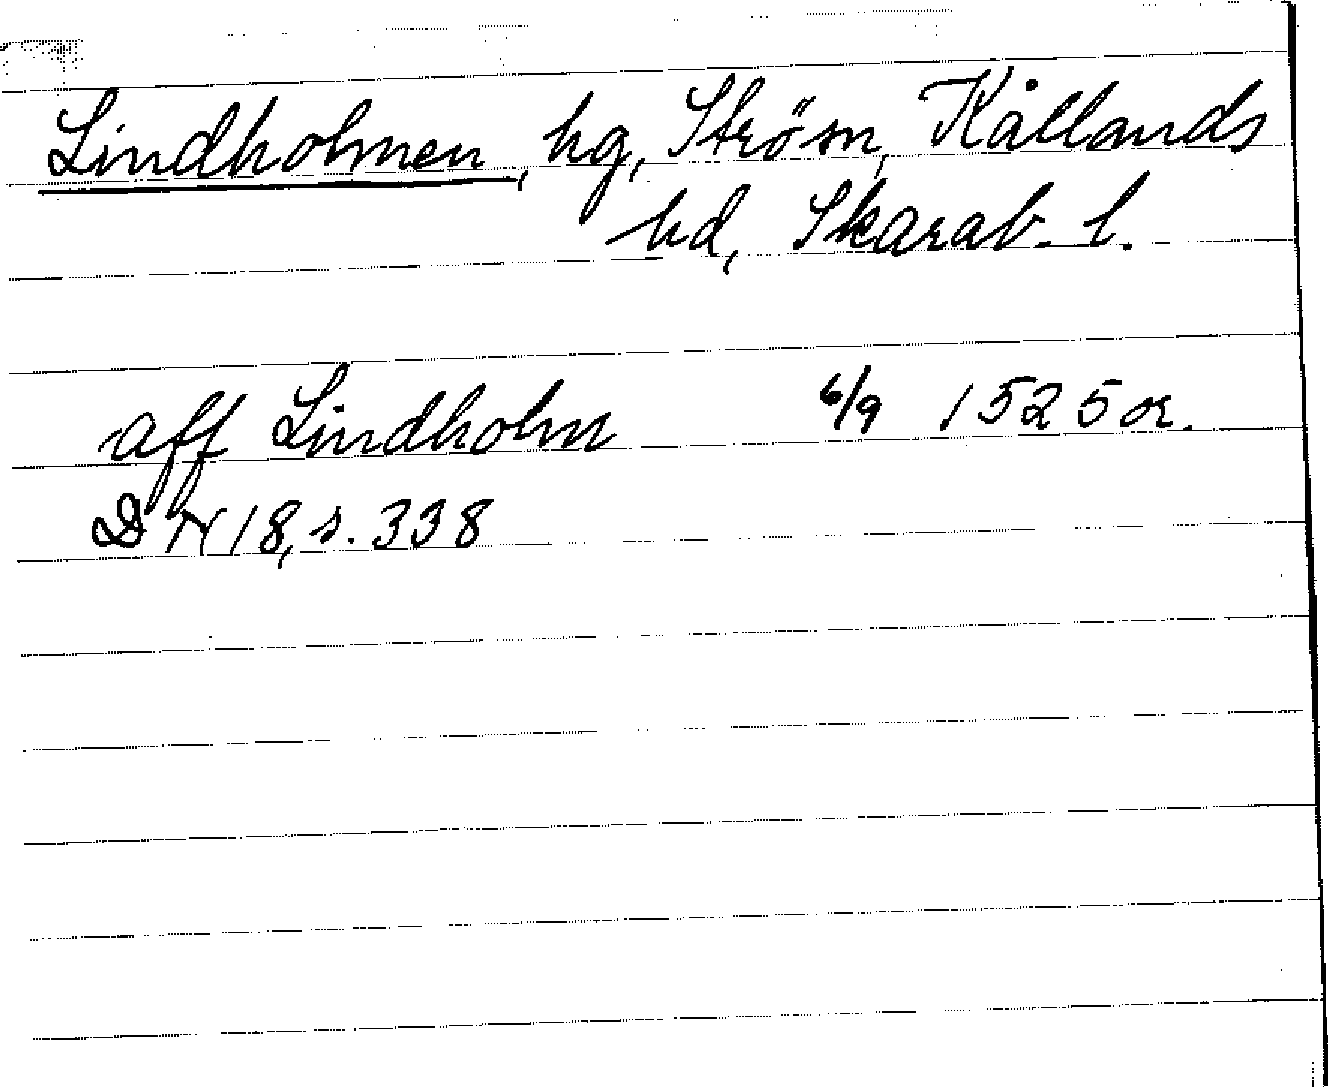 Lindholmen, hg, Ström, Kållands
hd, Skarab. l.
aff Lindholm 6/9 1525 or.
DN 18, s. 338